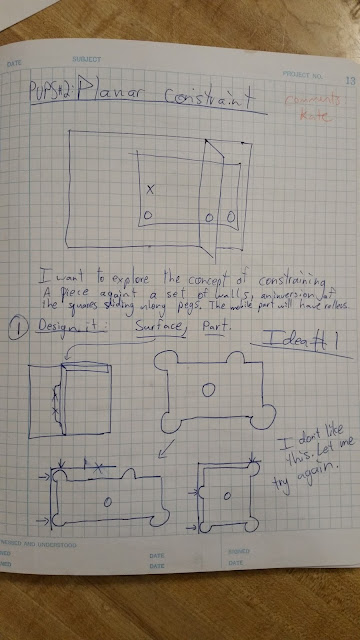 DATE SUBJECT PROJECT NO. 13
PUPS#2: Planar constraint
comments
Kate
X
I want to explore the concept of constraining
A piece against a set of walls, an inversion of
the squares sliding along pegs. The mobile part will have rollers.
1 Design it: Surface, Part.
Idea #1
I dont like
this. Let me
try again.
X
WITNESSED AND UNDERSTOOD SIGNED
DATE DATE
DATE DATE